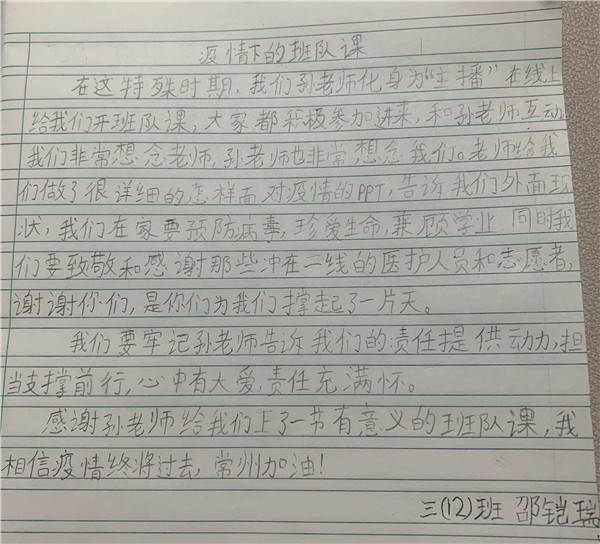 疫情下的班队课
在这特殊时期，我们孙老师化身为“主播”在线上
给我们开班队课，大家都积极参加进来，和孙老师互动
我们非常想念老师，孙老师也非常想念我们。老师给我
们做了很详细的怎样面对疫情的PPT，告诉我们外面现
状，我们在家要预防病毒，珍爱生命，兼顾学业 同时我
们要致敬和感谢那些冲在一线的医护人员和志愿者，
谢谢你们，是你们为我们撑起了一片天。
我们要牢记孙老师告诉我们的：责任提供动力，担
当支撑前行，心中有大爱，责任充满怀。
感谢孙老师给我们上了一节有意义的班队课，我
相信疫情终将过去，常州加油！
三(12)班 邵铠瑞